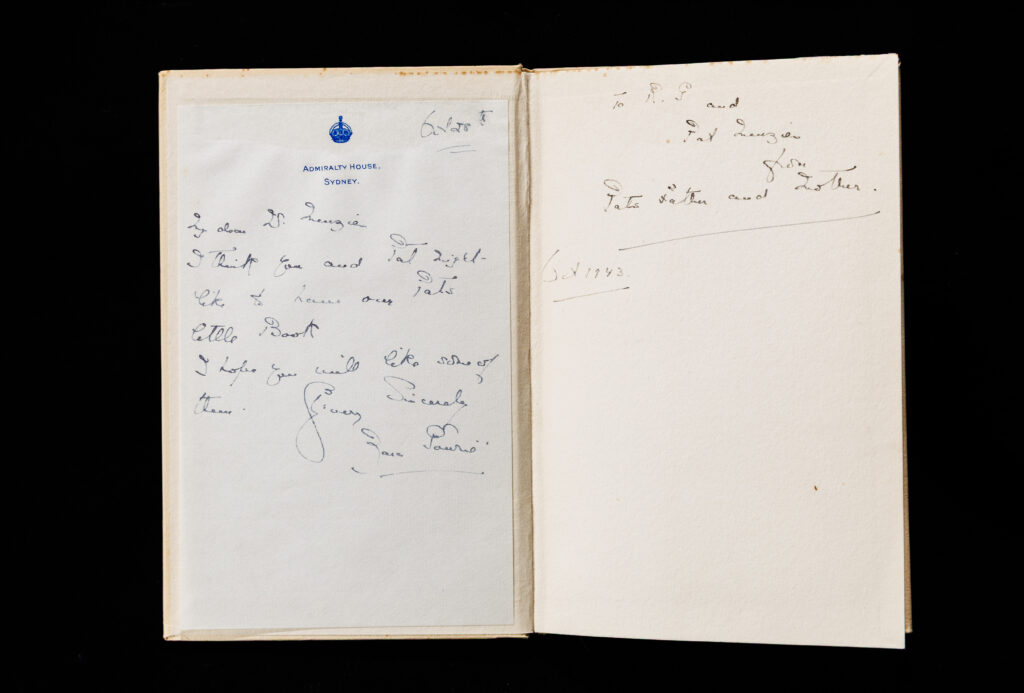 Oct 28th
ADMIRALTY HOUSE,
SYDNEY.
My dear Mr. Menzies
I think you and Pat might
like to have our Pats
little Book
I hope you will like some of
them.
Sincerely
Zara Gowrie
To R. G and
Pat Menzies
from
Pats Father and Mother.
Oct 1943.